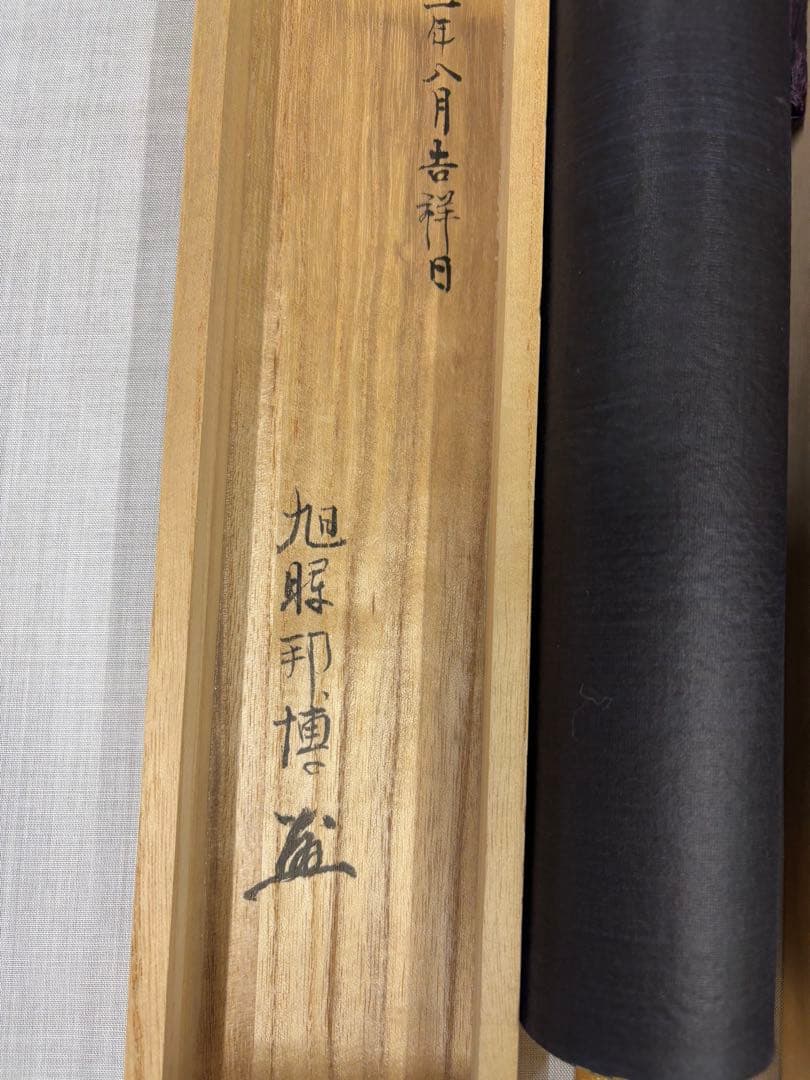 年八月吉祥日
旭暉邦博